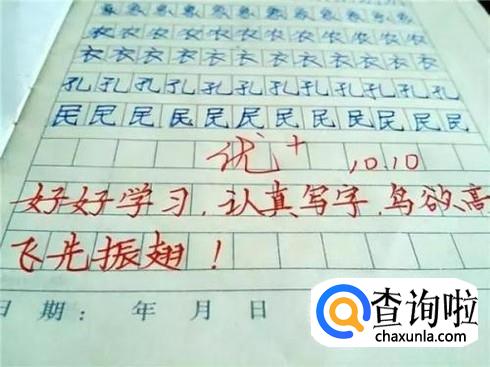 象象象象象象象象象象
农农农农农农农农农农农
衣衣衣衣衣衣衣衣衣衣衣
孔孔孔孔孔孔孔孔孔孔孔孔
民民民民民民民民民民
优+ 10.10
好好学习,认真写字,鸟欲高
飞先振翅!
日期: 年 月 日
查询啦
chaxunla.com